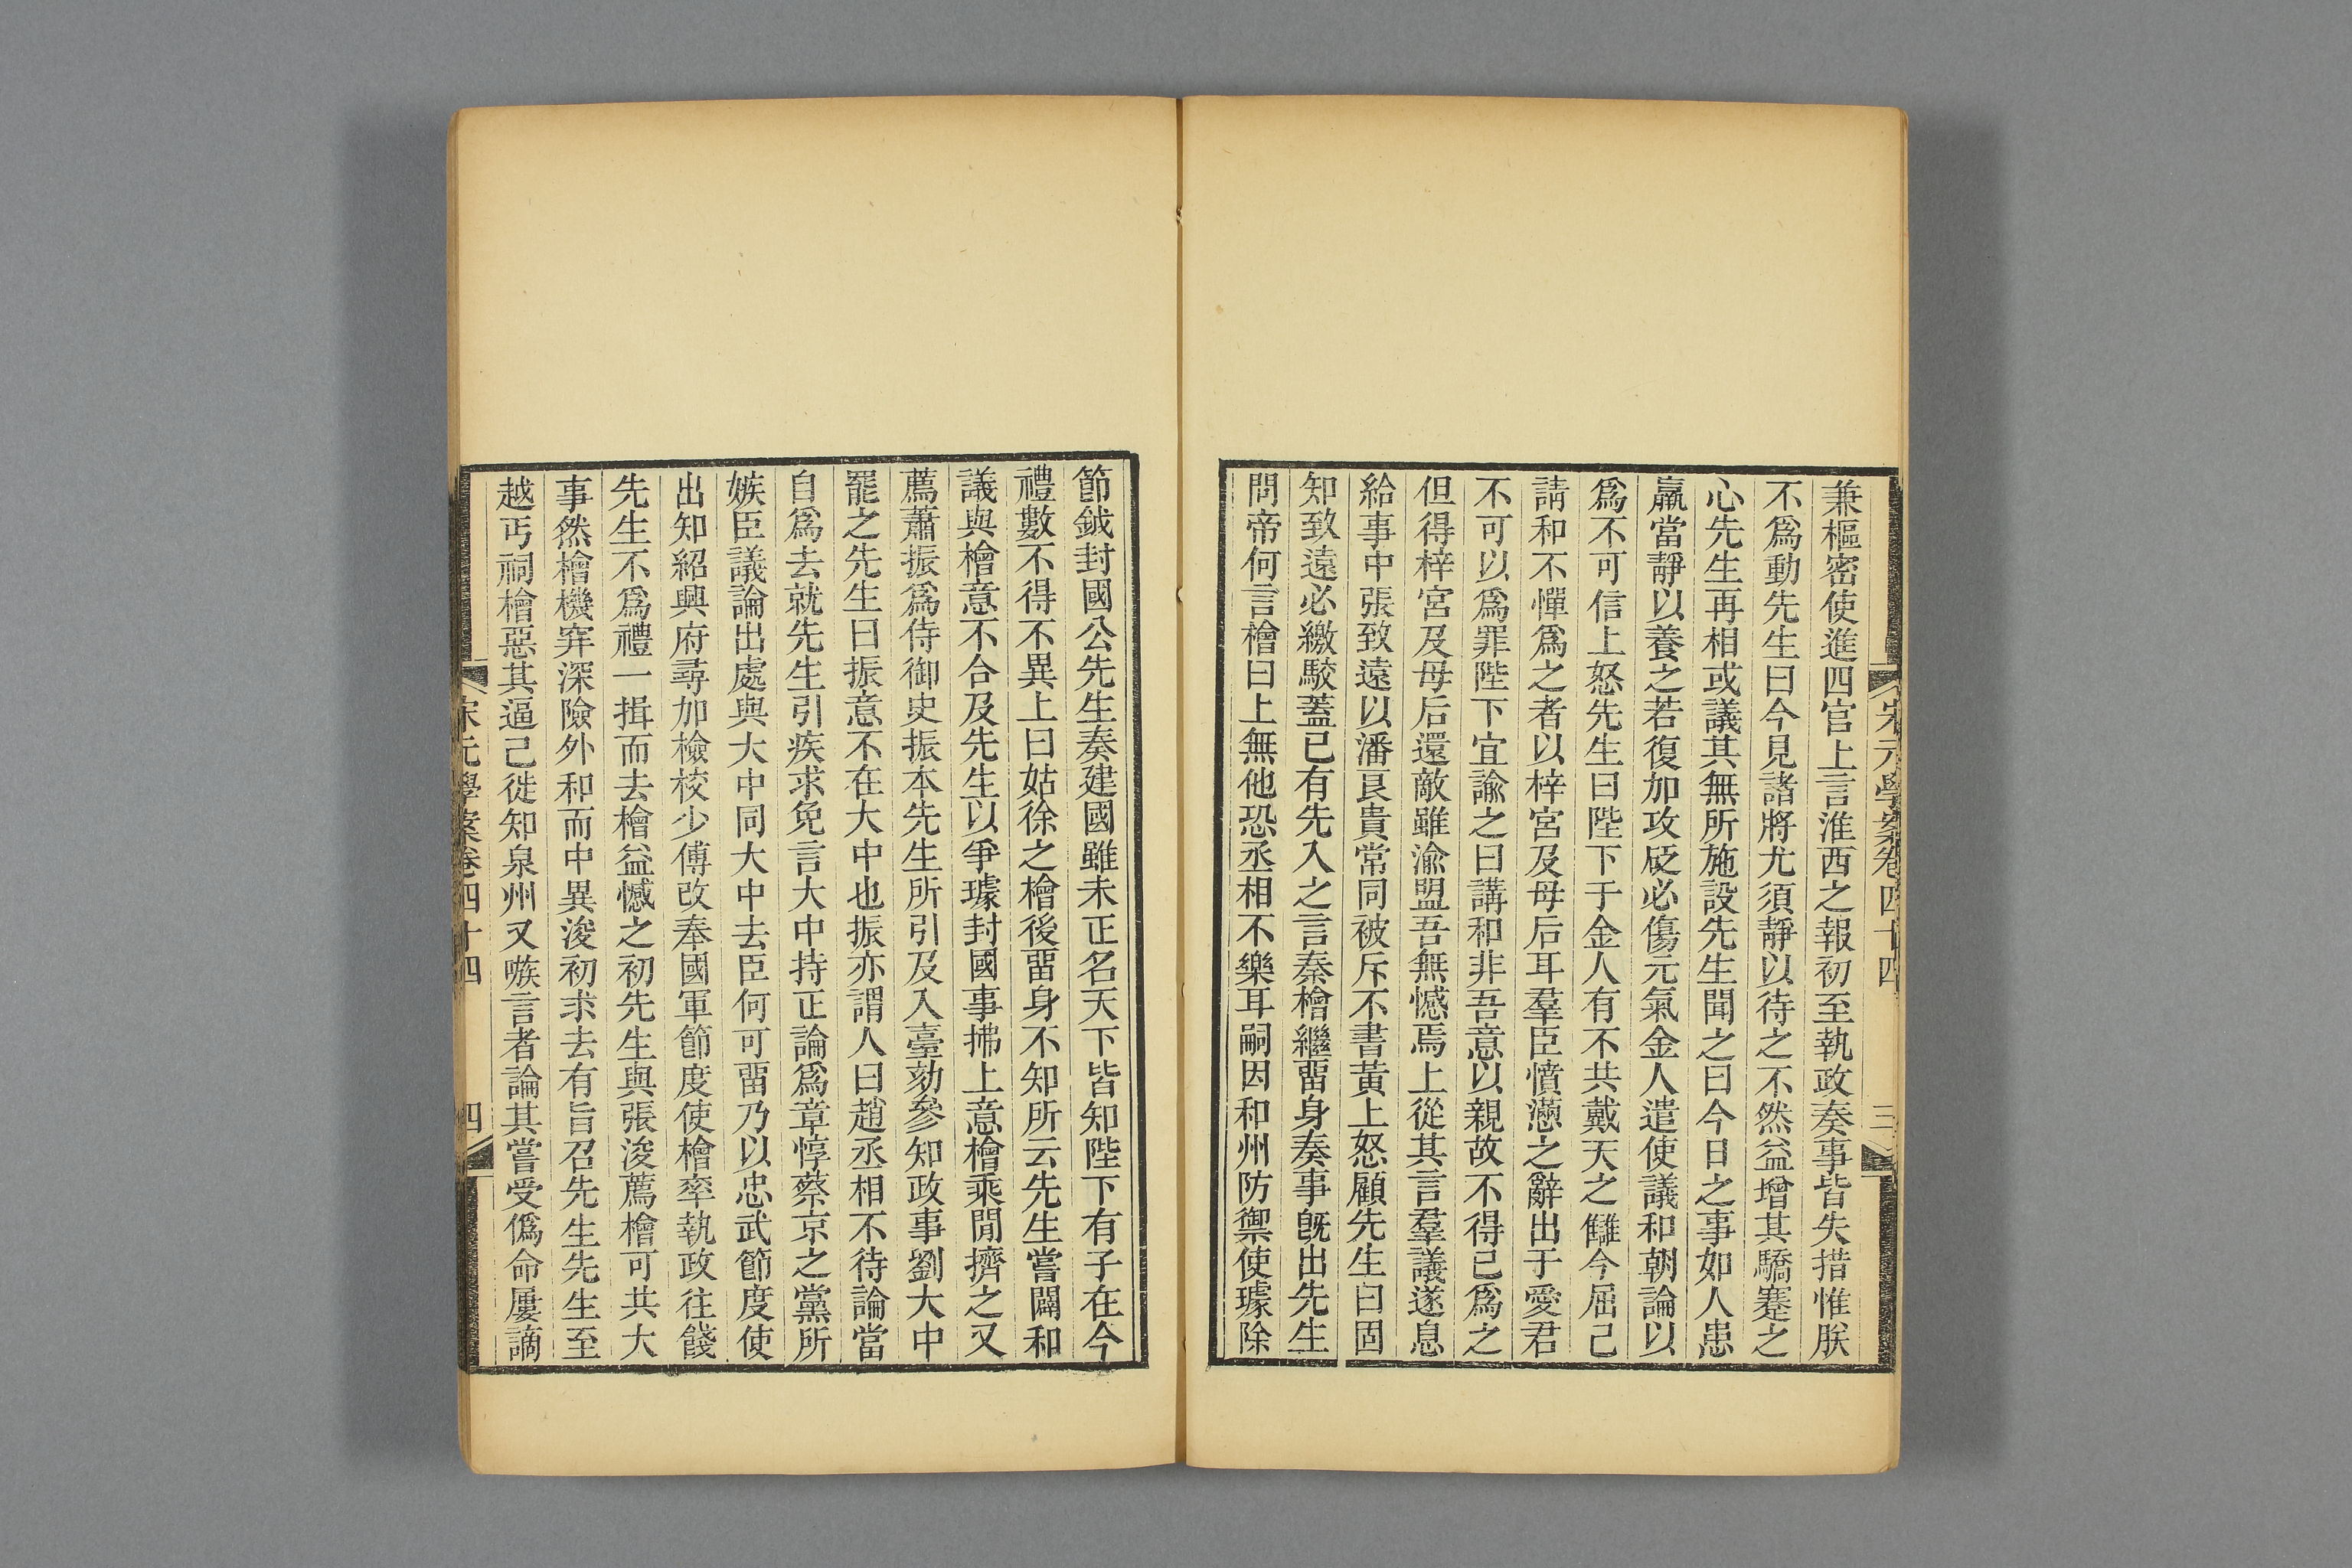 宋元學案卷四十四
三
兼樞密使進四官上言淮西之報初至執政奏事皆失措惟朕
不爲動先生曰今見諸將尤須靜以待之不然益增其驕蹇之
心先生再相或議其無所施設先生聞之曰今日之事如人患
羸當靜以養之若復加攻砭必傷元氣金人遣使議和朝論以
爲不可信上怒先生曰陛下于金人有不共戴天之讎今屈己
請和不憚爲之者以梓宮及母后耳羣臣憤懣之辭出于愛君
不可以爲罪陛下宜諭之曰講和非吾意以親故不得已爲之
但得梓宮及母后還敵雖渝盟吾無憾焉上從其言羣議遂息
給事中張致遠以潘良貴常同被斥不書黃上怒顧先生曰固
知致遠必繳駮蓋已有先入之言秦檜繼畱身奏事旣出先生
問帝何言檜曰上無他恐丞相不樂耳嗣因和州防禦使璩除
節鉞封國公先生奏建國雖未正名天下皆知陛下有子在今
禮數不得不異上曰姑徐之檜後畱身不知所云先生嘗闢和
議與檜意不合及先生以爭璩封國事拂上意檜乘閒擠之又
薦蕭振爲侍御史振本先生所引及入臺劾參知政事劉大中
罷之先生曰振意不在大中也振亦謂人曰趙丞相不待論當
自爲去就先生引疾求免言大中持正論爲章惇蔡京之黨所
嫉臣議論出處與大中同大中去臣何可畱乃以忠武節度使
出知紹興府尋加檢校少傅改奉國軍節度使檜率執政往餞
先生不爲禮一揖而去檜益憾之初先生與張浚薦檜可共大
事然檜機穽深險外和而中異浚初求去有旨召先生先生至
越丐祠檜惡其逼己徙知泉州又嗾言者論其嘗受僞命屢謫
宋元學案卷四十四
四